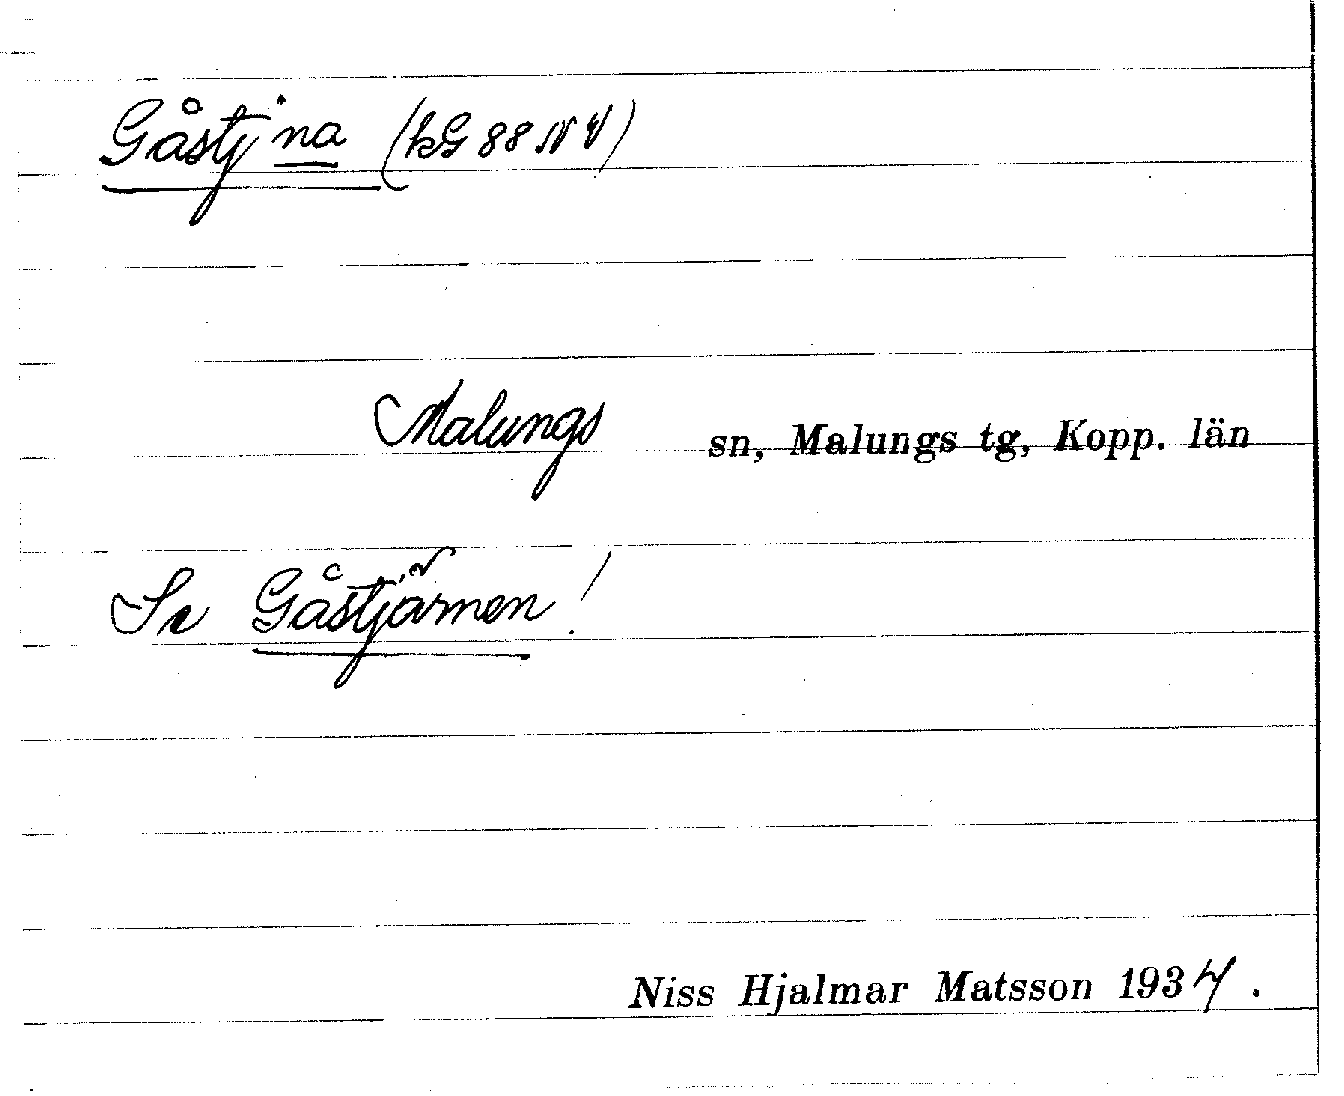 Gåstj'na (kG 88 NV)
Malungs sn, Malungs tg, Kopp. län
Se Gåstjärnen!
Niss Hjalmar Matsson 1934.